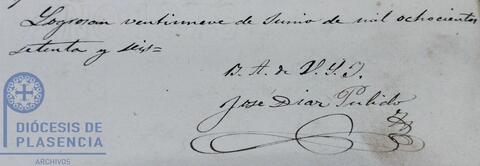 Logrosan ventinueve de Junio de mil ochocientos
setenta y seis=
B. A. de V. S. I.
José Diaz Pulido
DIÓCESIS DE
PLASENCIA
ARCHIVOS